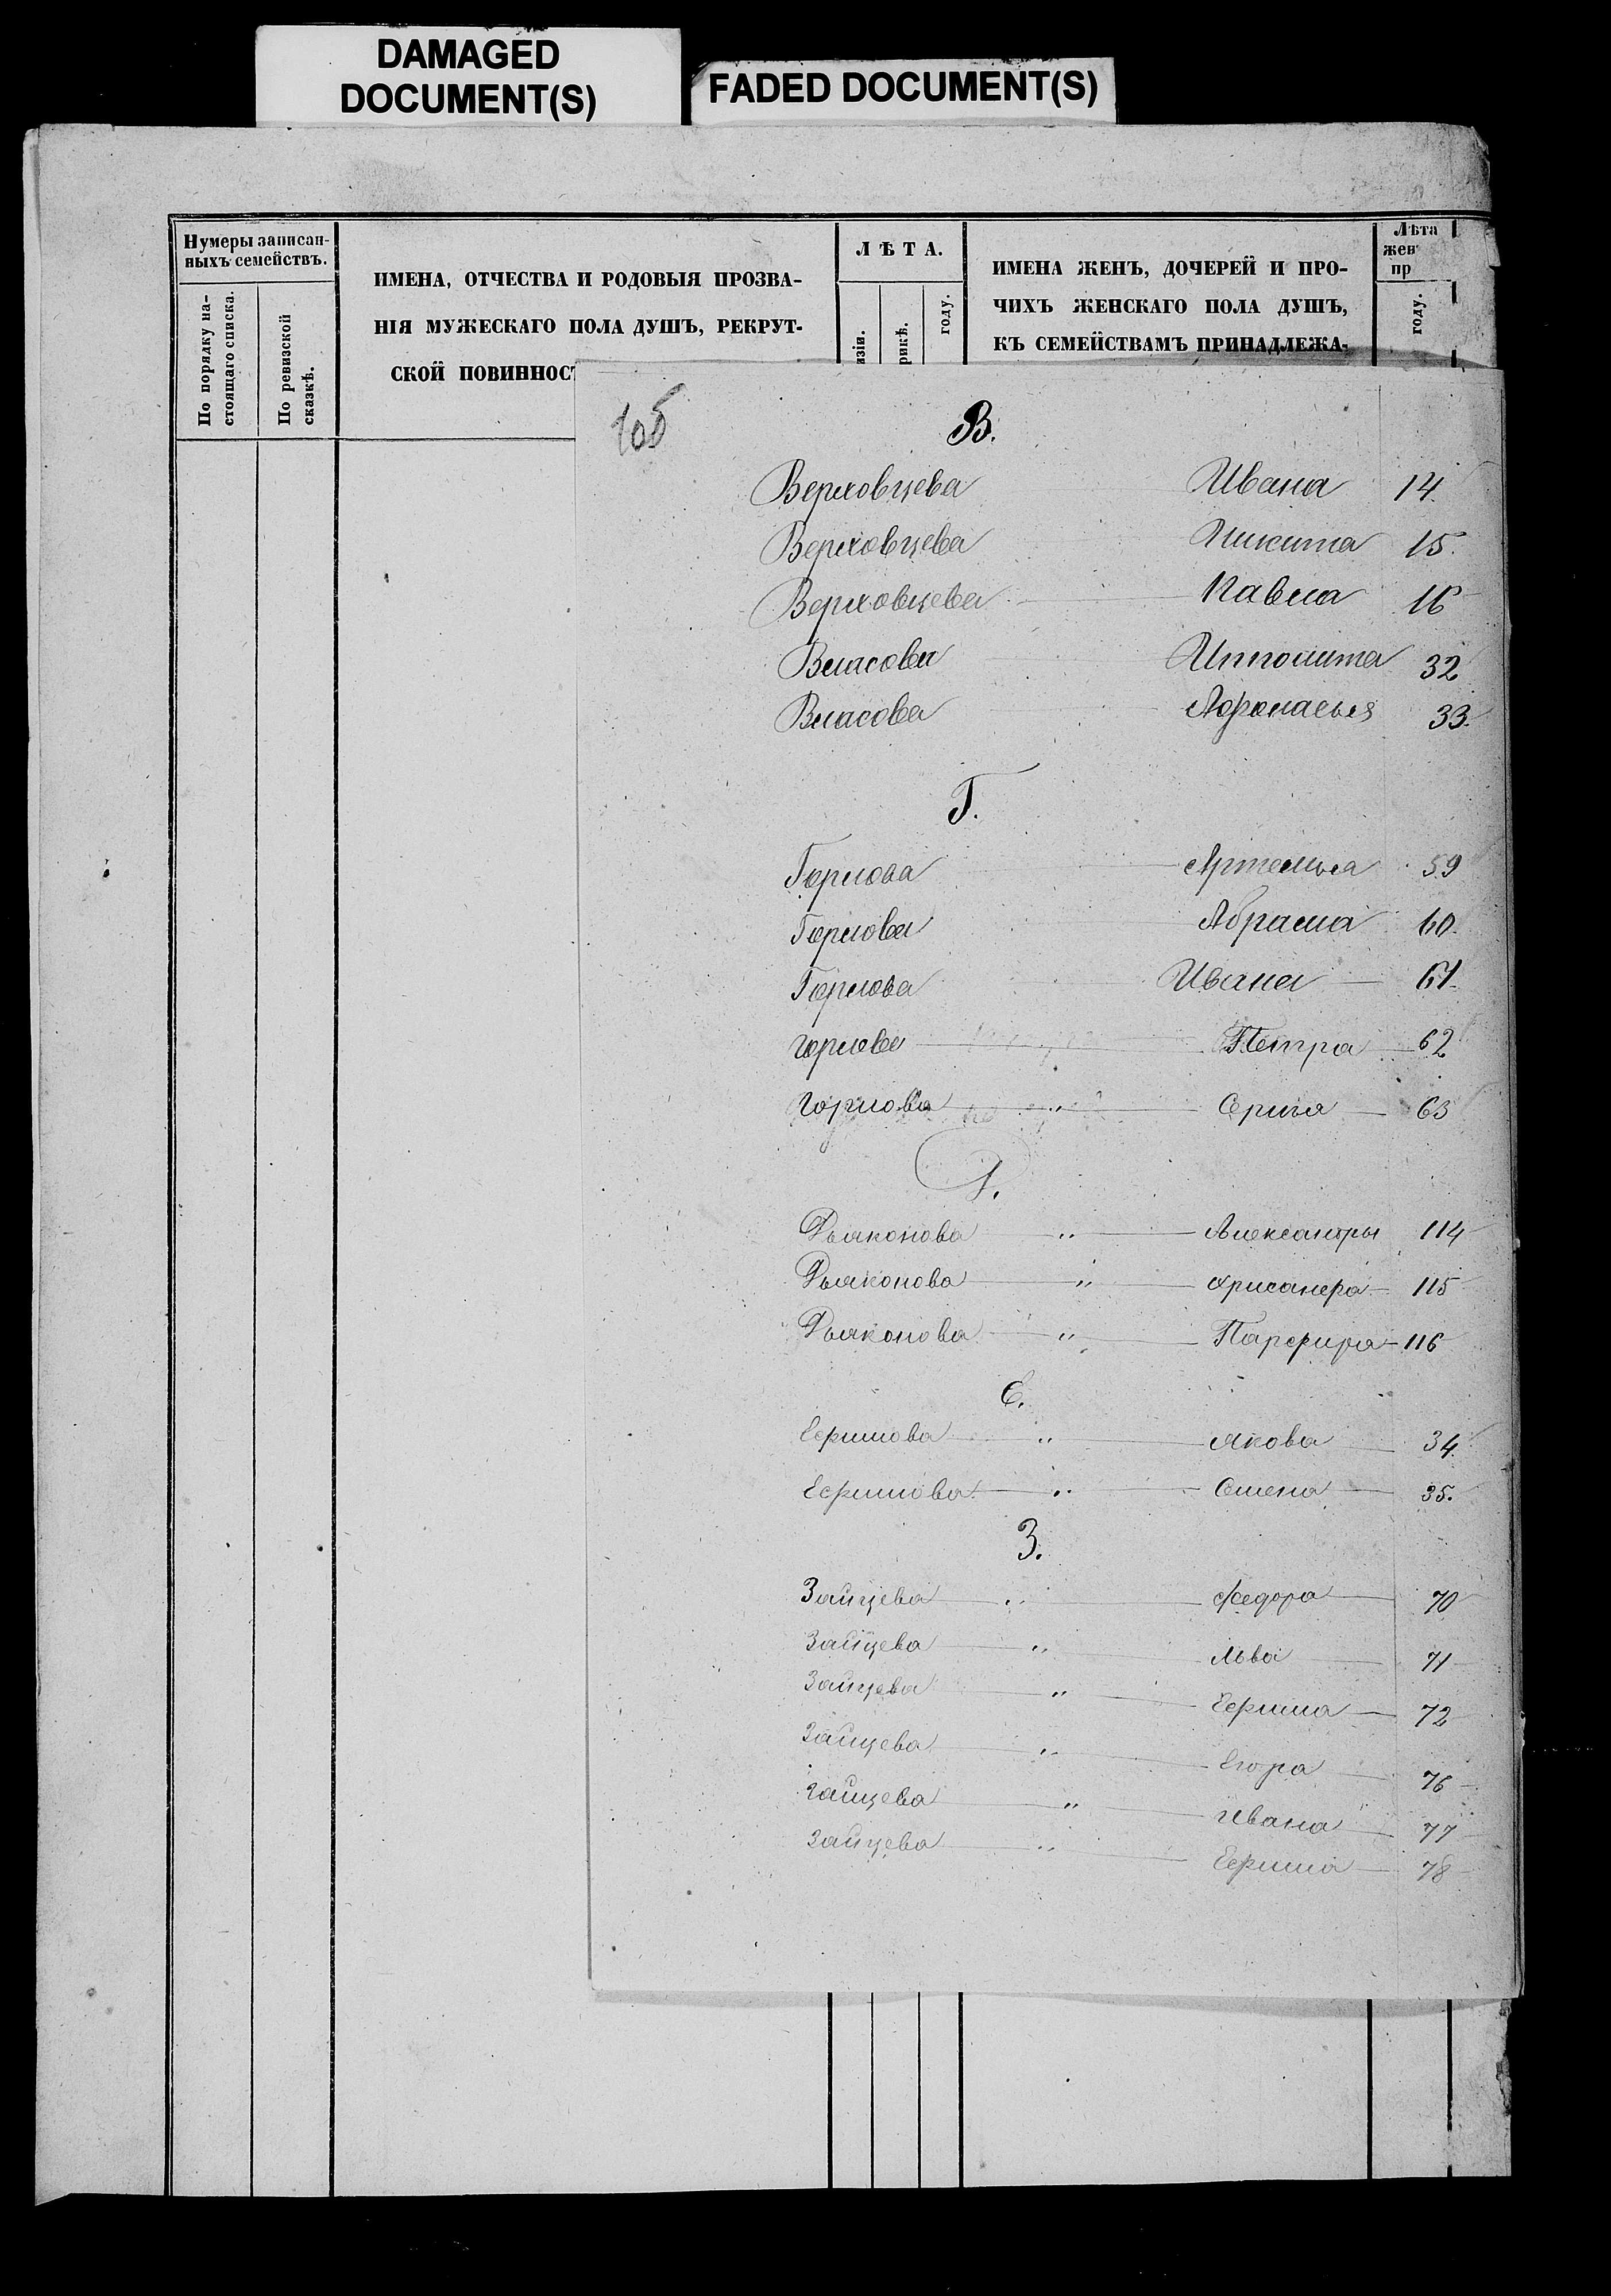 DAMAGED
DOCUMENT(S)
FADED DOCUMENT(S)
Нумеры записан-
ныхъ семействъ.
По порядку на-
стоящаго списка.
По ревизской
сказкѣ.
ИМЕНА, ОТЧЕСТВА И РОДОВЫЯ ПРОЗВА-
НІЯ МУЖЕСКАГО ПОЛА ДУШЪ, РЕКРУТ-
СКОЙ ПОВИННОСТ
ЛѢТА.
изіи.
рикѣ.
году.
ИМЕНА ЖЕНЪ, ДОЧЕРЕЙ И ПРО-
ЧИХЪ ЖЕНСКАГО ПОЛА ДУШЪ,
КЪ СЕМЕЙСТВАМЪ ПРИНАДЛЕЖА-
Лѣта
жен
пр
году.
В.
Верховцева Ивана 14.
Верховцева Никита 15.
Верховцева Павла 16
Власова Ипполита 32
Власова Афонасья 33.
Г.
Горлова Артемья 59
Горлова Абрама 60.
Горлова Ивана 61.
Горлова Петра 62
Горлова " Сергия 63
Д.
Дьяконова " Александры 114
Дьяконова " Хрисанфа 115
Дьяконова " Парфира 116
Е.
Ефимова " Якова 34.
Ефимова " Семена 35.
З.
Зайцева " Федора 70
Зайцева " Льва 71
Зайцева " Ефима 72
Зайцева " Егора 76
Зайцева " Ивана 77
Зайцева " Ефима 78